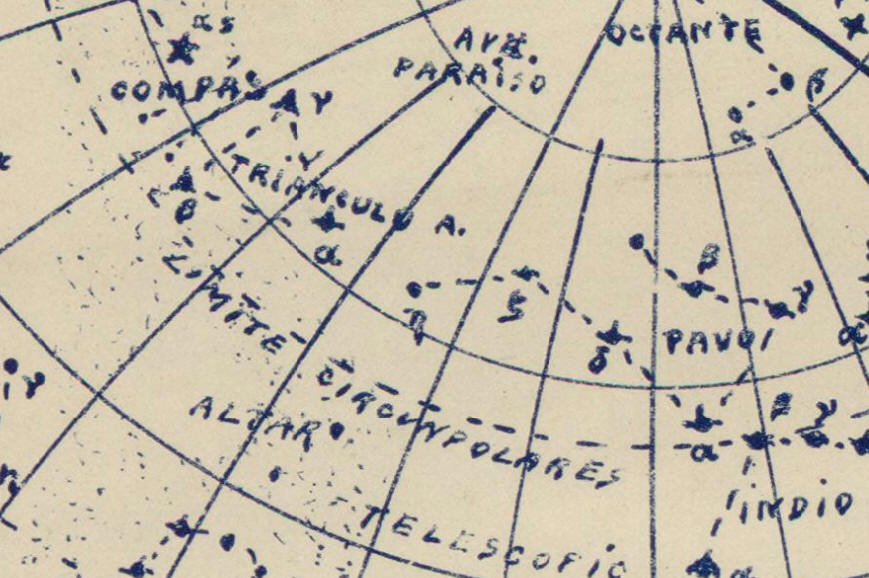 αs
AVE.
PARAISO
OCTANTE
COMPAS
γ
β
α
TRIANGULO A.
β
α
LIMITE
CIRCUNPOLARES
η
ξ
δ
β
γ
PAVO
α
ALTAR
α
β
γ
INDIO
α
TELESCOPIO
γ